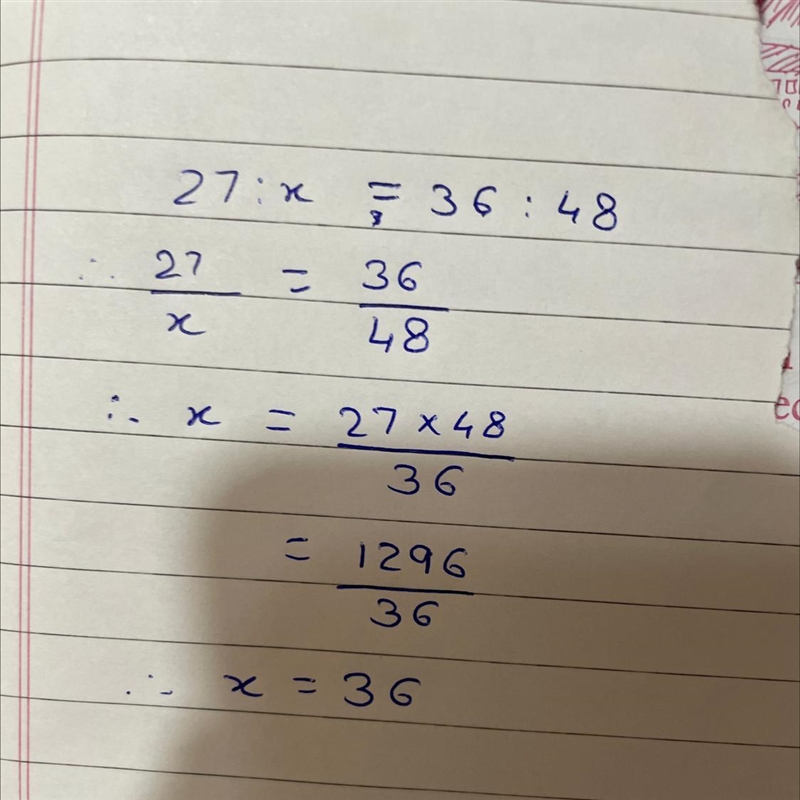 27 : x = 36 : 48
∴ 27/x = 36/48
∴ x = 27 × 48/36
= 1296/36
∴ x = 36